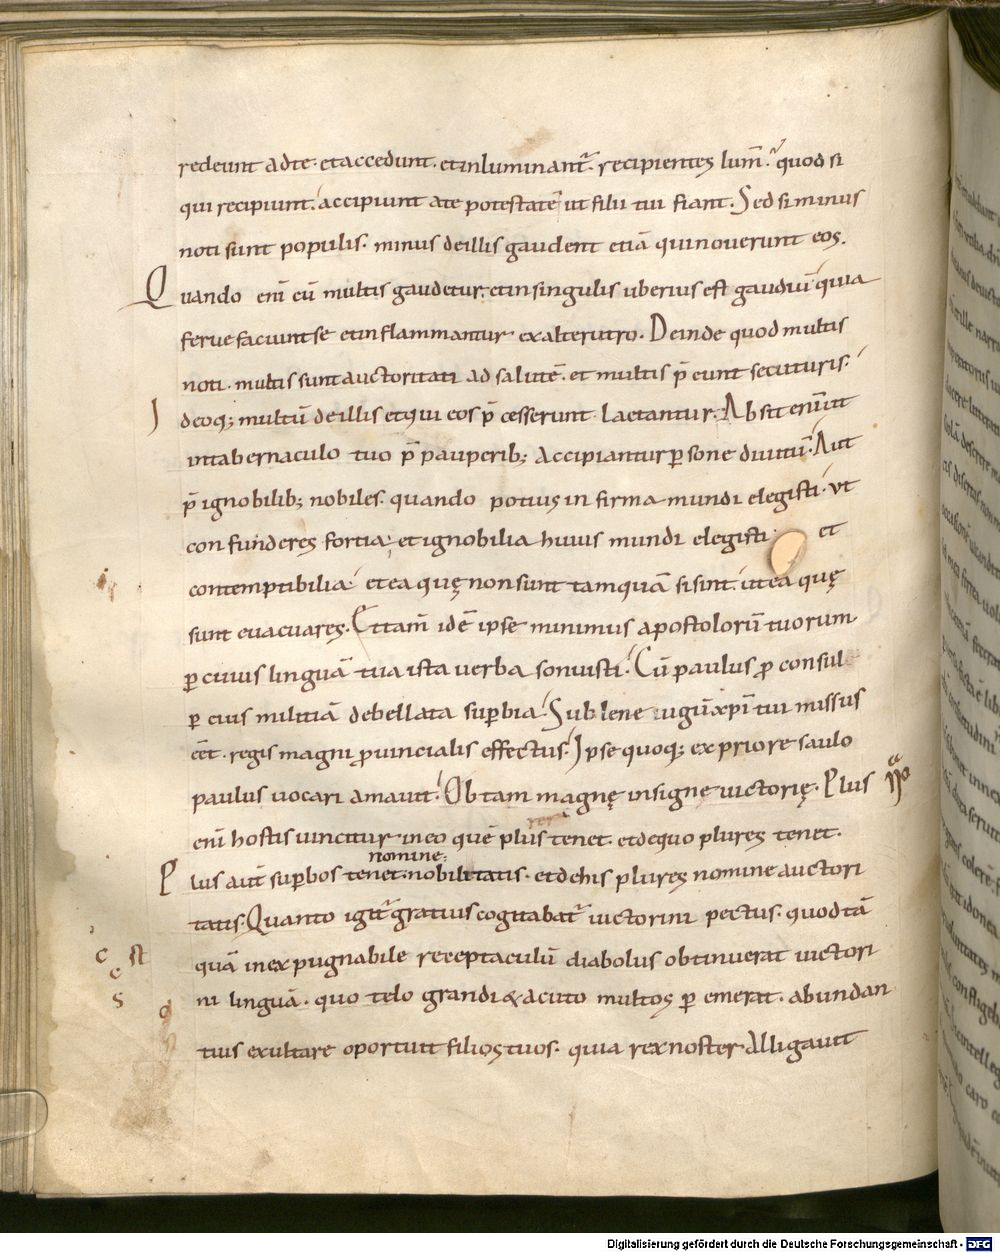 redeunt adte· etaccedunt· etinluminant᷑· recipientes lum̅· quod si
qui recipiunt· accipiunt ate potestate̅ ut filii tui fiant· Sed siminus
noti sunt populis· minus deillis gaudent etia̅ quinouerunt eos.
Quando eni̅ cu̅ multis gaudetur; etinsingulis uberius est gaudiu̅ quia
feruefaciuntse etinflammantur exalterutro· Deinde quod multis
noti· multis suntauctoritati ad salute̅· et multis p̅ eunt secuturis·
Ideoq; multu̅ deillis etqui eos p̅ cesserunt· laetantur· Absit eni̅ut
intabernaculo tuo p̅ pauperib; accipianturꝑsone diuitu̅· Aut
p̅ ignobilib; nobiles· quando potius in firma mundi elegisti· ut
confunderes fortia; et ignobilia huius mundi elegisti et
contemptibilia· etea quę nonsunt tamqua̅ sisint· utea quę
sunt euacuares· Ettam̅ ide̅ ipse minimus apostoloru̅ tuorum
ꝑ cuius lingua̅ tua ista uerba sonuisti· Cu̅ paulus ꝓ consul
ꝑ eius militia̅ debellata suꝑbia· Sub lene iugu̅ xp̅i tui missus
ee̅t· regis magni ꝓuincialis effectus· Ipse quoq; ex priore saulo
paulus uocari amauit· Obtam magnę insigne uictorię· Plus
eni̅ hostis uincitur ineo que̅ plus tenet· etdequo plures tenet.
nomine:
Plus aut̅ suꝑbos tenet· nobilitatis· etdehis plures nomine auctori
tatis· Quanto igit᷑ gratius cogitabat᷑ uictorini pectus· quod ta̅
qua̅ inexpugnabile receptaculu̅ diabolus obtinuerat uictori
ni lingua̅· quo telo grandi & acuto multos ꝑ emerat· abundan
tius exultare oportuit filios tuos· quia rex noster· Alligauit
c st
e
s
Digitalisierung gefördert durch die Deutsche Forschungsgemeinschaft - DFG